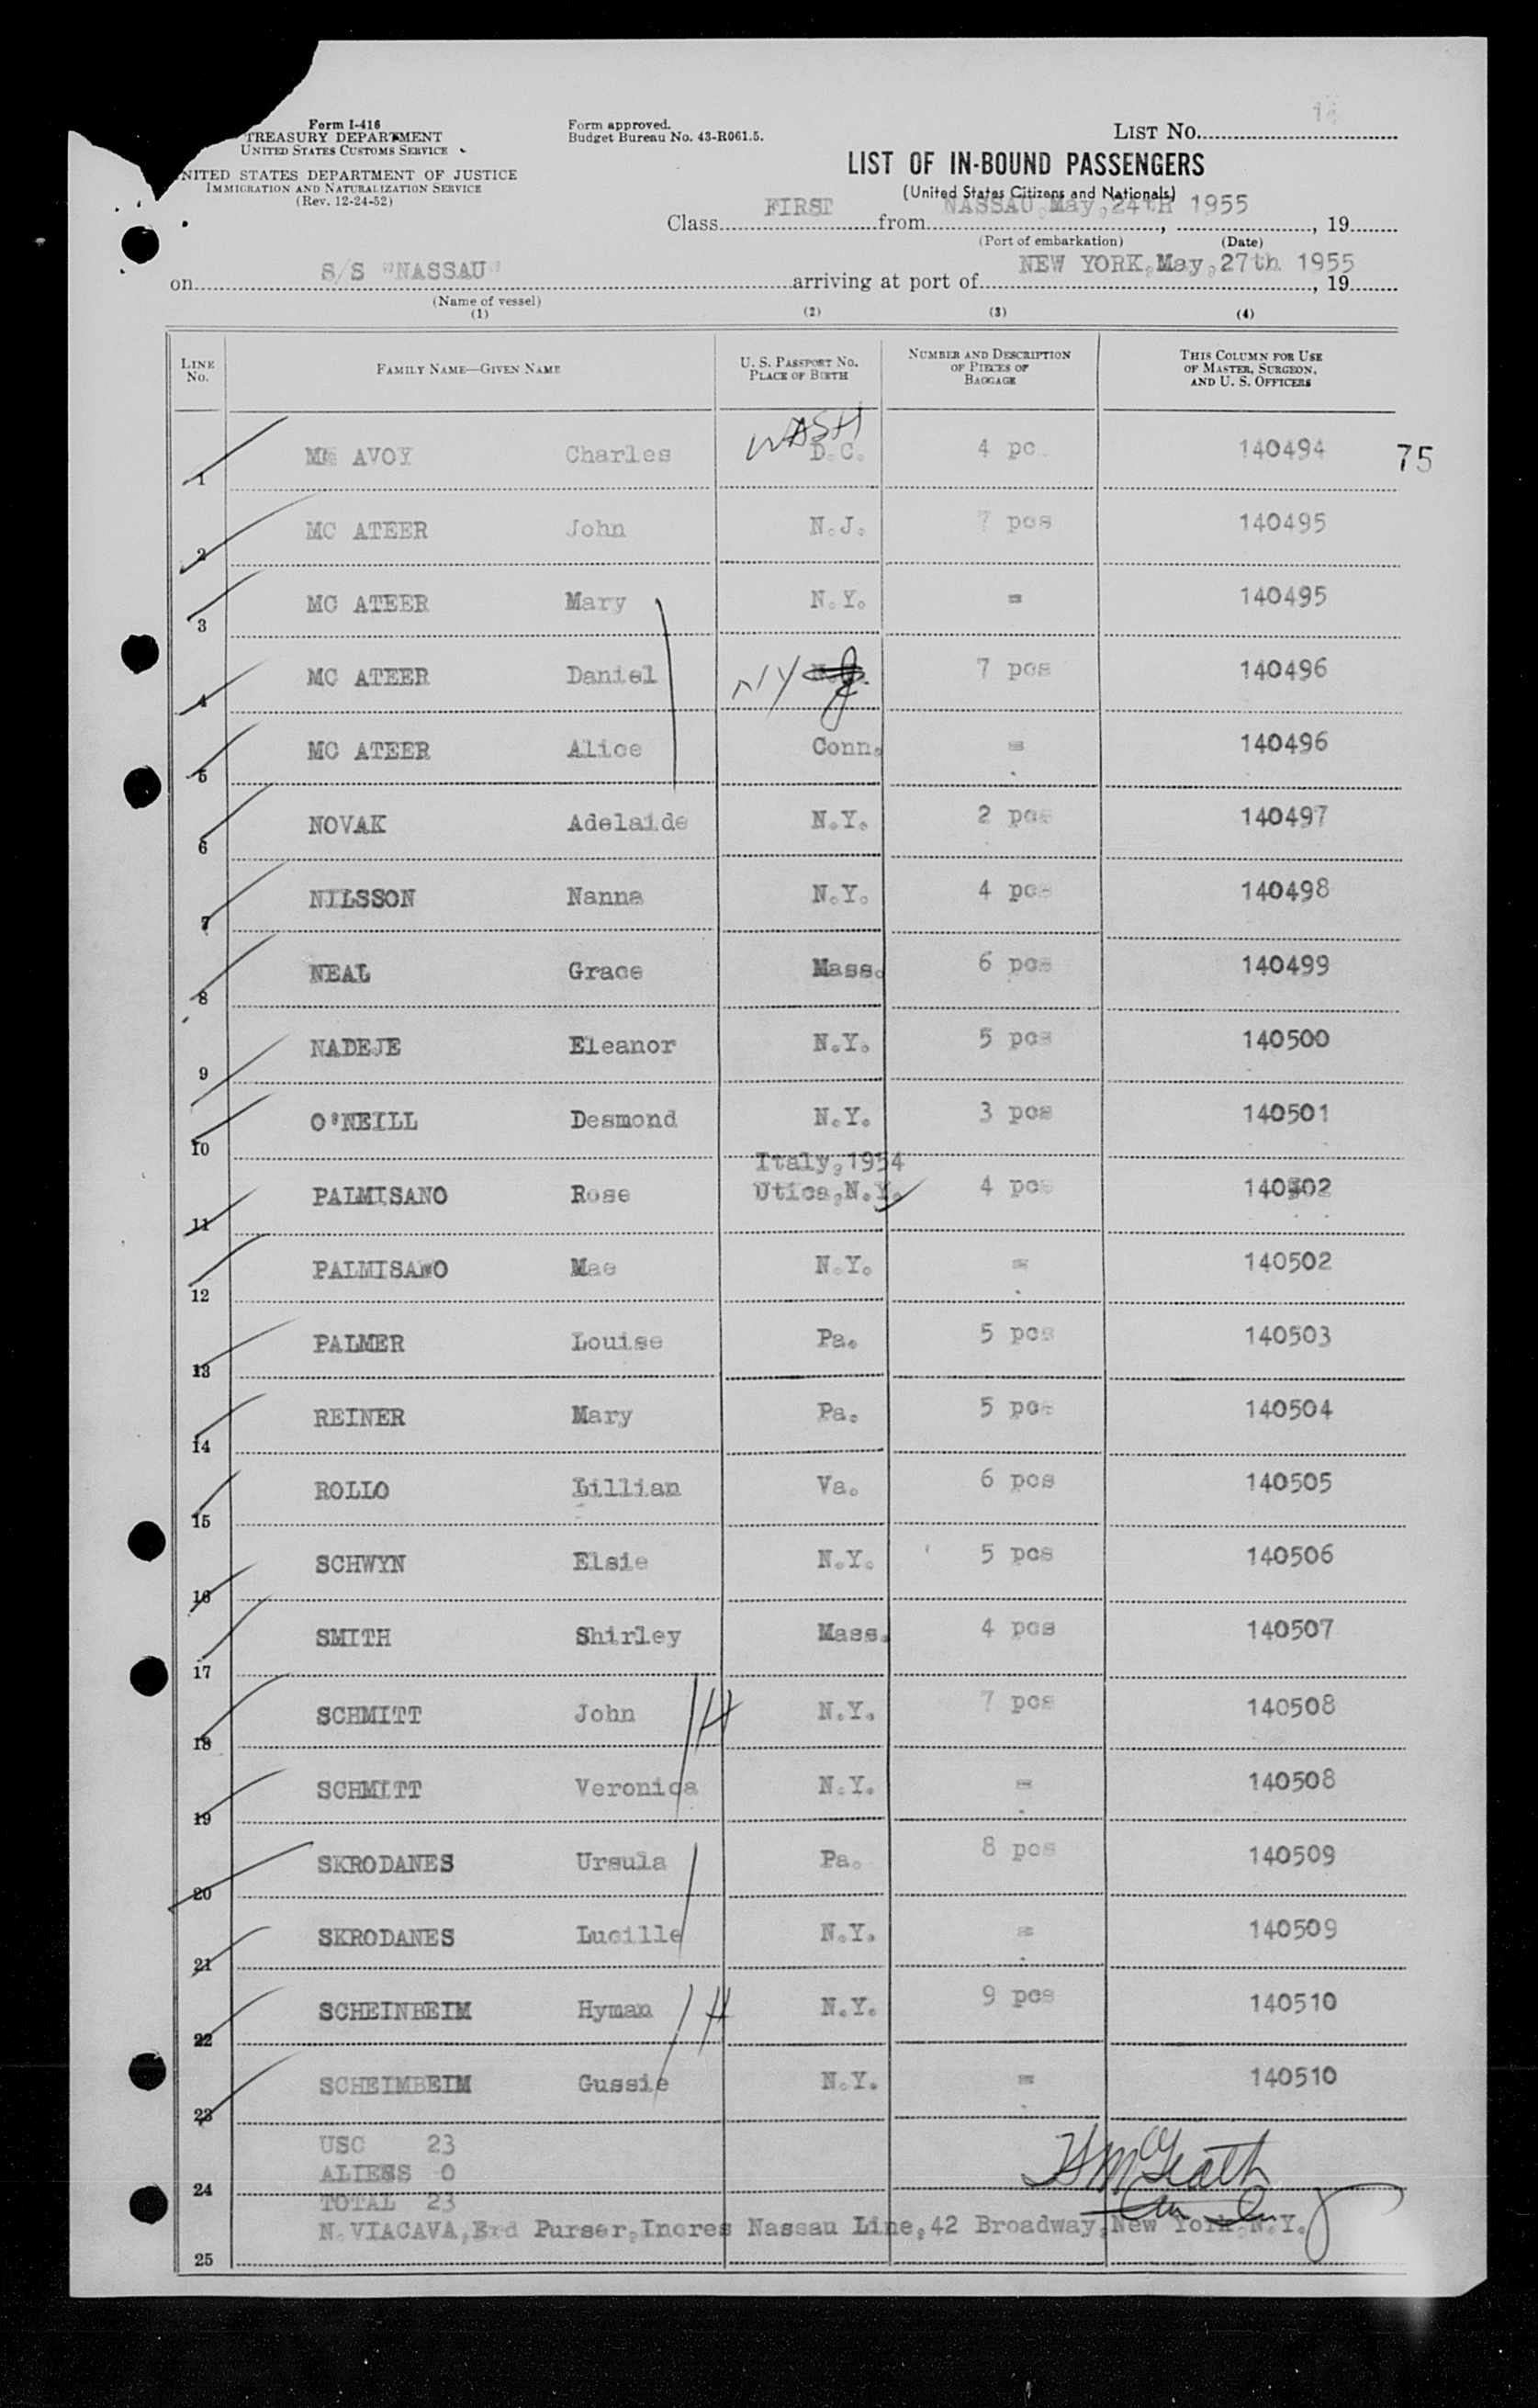 Form I-416
TREASURY DEPARTMENT
UNITED STATES CUSTOMS SERVICE
UNITED STATES DEPARTMENT OF JUSTICE
IMMIGRATION AND NATURALIZATION SERVICE
(Rev. 12-24-52)
Form approved.
Budget Bureau No. 43-R061.5.
LIST NO.
LIST OF IN-BOUND PASSENGERS
(United States Citizens and Nationals)
Class FIRST from NASSAU, May, 24th 1955, 19
(Port of embarkation) (Date)
on S/S "NASSAU" arriving at port of NEW YORK, May, 27th 1955, 19
(Name of vessel)
(1) (2) (3) (4)
LINE NO. FAMILY NAME—GIVEN NAME U. S. PASSPORT NO. PLACE OF BIRTH NUMBER AND DESCRIPTION OF PIECES OF BAGGAGE THIS COLUMN FOR USE OF MASTER, SURGEON, AND U. S. OFFICERS
1 MC AVOY Charles WASH D.C. 4 pc. 140494 75
2 MC ATEER John N.J. 7 pcs 140495
3 MC ATEER Mary N.Y. = 140495
4 MC ATEER Daniel NY 7 pcs 140496
5 MC ATEER Alice Conn. = 140496
6 NOVAK Adelaide N.Y. 2 pcs 140497
7 NILSSON Nanna N.Y. 4 pcs 140498
8 NEAL Grace Mass. 6 pcs 140499
9 NADEJE Eleanor N.Y. 5 pcs 140500
10 O'NEILL Desmond N.Y. 3 pcs 140501
Italy, 1954
11 PALMISANO Rose Utica, N.Y. 4 pcs 140502
12 PALMISANO Mae N.Y. = 140502
13 PALMER Louise Pa. 5 pcs 140503
14 REINER Mary Pa. 5 pcs 140504
15 ROLLO Lillian Va. 6 pcs 140505
16 SCHWYN Elsie N.Y. 5 pcs 140506
17 SMITH Shirley Mass. 4 pcs 140507
18 SCHMITT John H N.Y. 7 pcs 140508
19 SCHMITT Veronica N.Y. = 140508
20 SKRODANES Ursula Pa. 8 pcs 140509
21 SKRODANES Lucille N.Y. = 140509
22 SCHEINBEIM Hyman H N.Y. 9 pcs 140510
23 SCHEIMBEIM Gussie N.Y. = 140510
USC 23
ALIENS 0
24
TOTAL 23
N. VIACAVA, 3rd Purser, Incres Nassau Line, 42 Broadway, New York, N.Y.
25